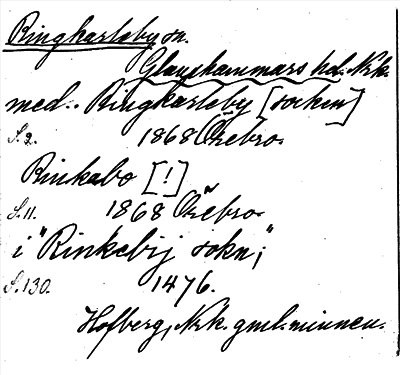 Ringkarleby sn.
Glanshammars hd. Nrk.
med. Ringkarleby [socken]
S. 2. 1868 Örebro.
Rinkabo [!]
S. 11. 1868 Örebro.
i "Rinkebij sokn";
S. 130. 1476.
Hofberg, Nrk. gml. minnen.